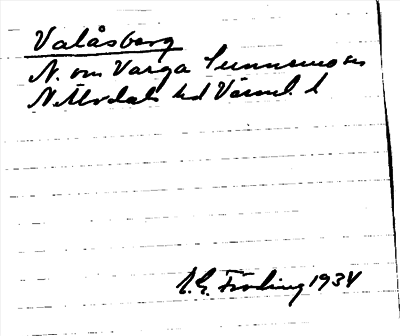 Valåsberg
N. om Varga Sunnemo sn
N. Älvdals hd Värml. l
E. G. Fröling 1934